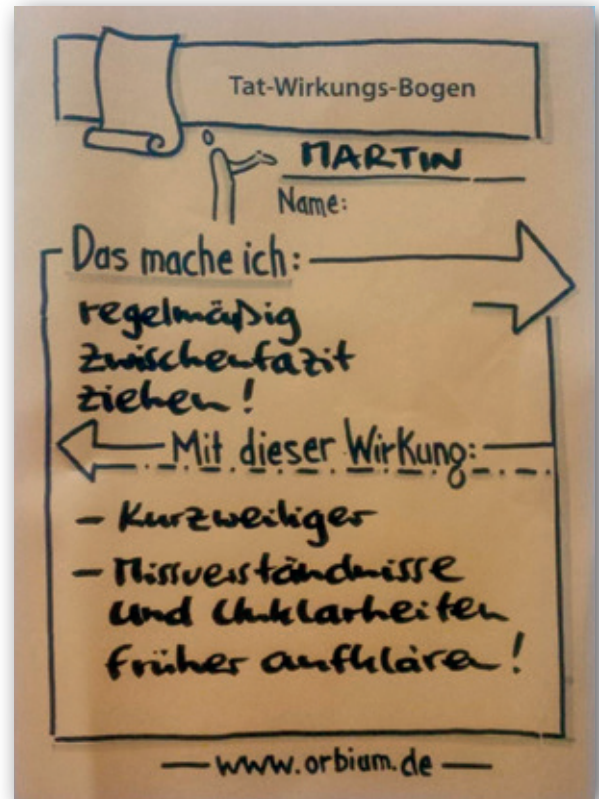 Tat-Wirkungs-Bogen
MARTIN
Name:
Das mache ich:
regelmäßig
Zwischenfazit
ziehen!
Mit dieser Wirkung:
- Kurzweiliger
- Missverständnisse
und Unklarheiten
früher aufklären!
www.orbium.de